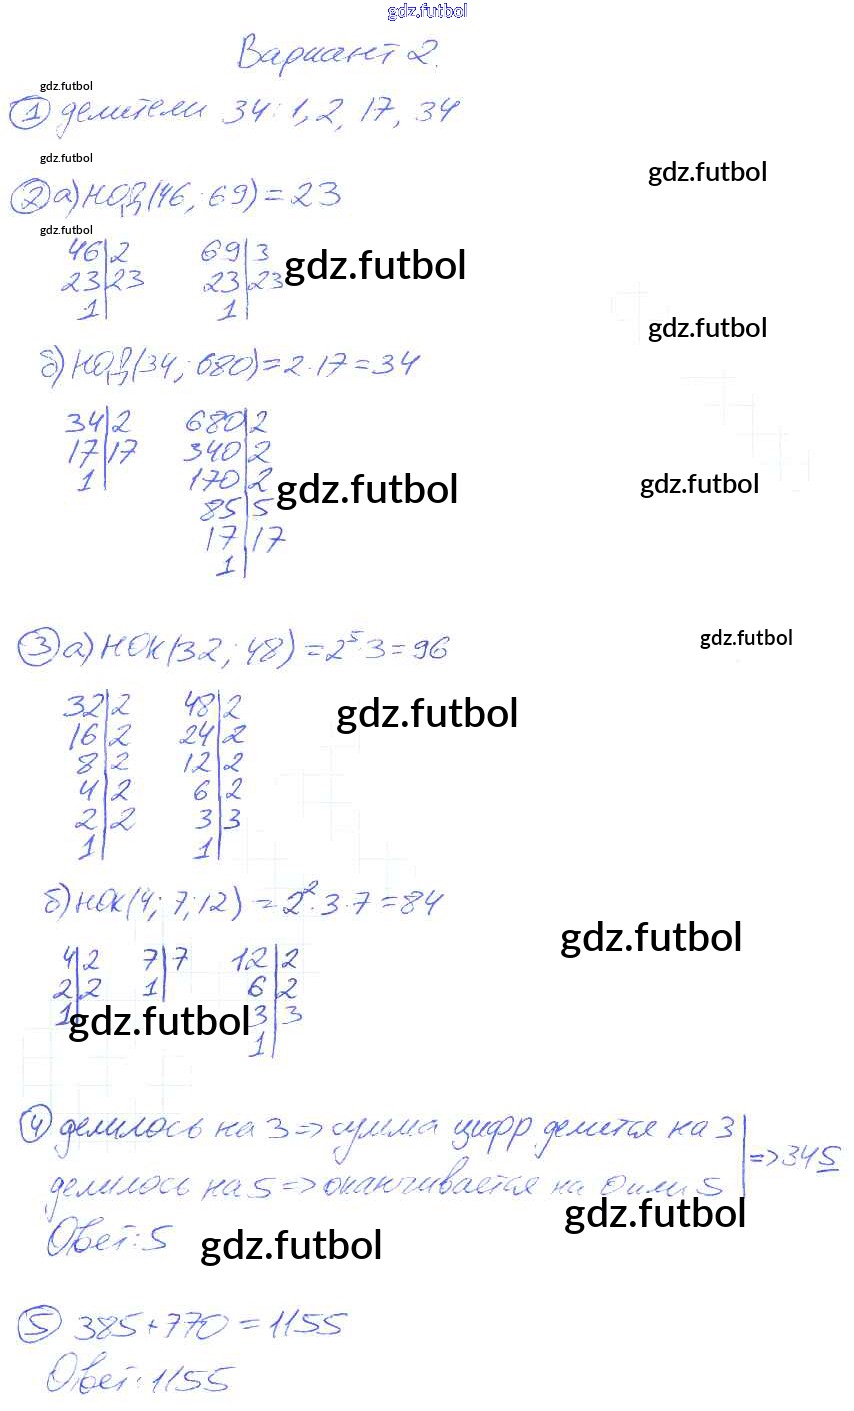 gdz.futbol
Вариант 2.
gdz.futbol
① делители 34: 1, 2, 17, 34
gdz.futbol
gdz.futbol
② а) НОД(46; 69) = 23
gdz.futbol
46|2 69|3
gdz.futbol
23|23 23|23
1| 1|
gdz.futbol
б) НОД(34; 680) = 2·17 = 34
34|2 680|2
17|17 340|2
1| 170|2
gdz.futbol
gdz.futbol
85|5
17|17
1|
③ а) НОК(32; 48) = 2⁵·3 = 96
gdz.futbol
32|2 48|2
gdz.futbol
16|2 24|2
8|2 12|2
4|2 6|2
2|2 3|3
1| 1|
б) НОК(4; 7; 12) = 2²·3·7 = 84
gdz.futbol
4|2 7|7 12|2
2|2 1| 6|2
1| 3|3
gdz.futbol
1|
④ делилось на 3 => сумма цифр делится на 3
делилось на 5 => оканчивается на 0 или 5 | => 345
gdz.futbol
Ответ: 5
gdz.futbol
⑤ 385 + 770 = 1155
Ответ: 1155